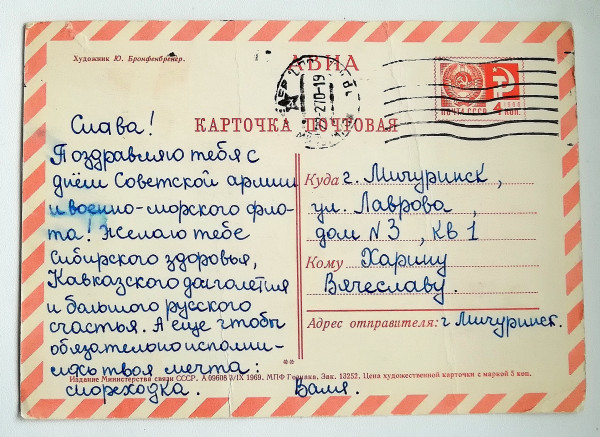 Художник Ю. Бронфенбренер.
АВИА
ПОЧТА СССР 4 коп.
КАРТОЧКА ПОЧТОВАЯ
Слава!
Поздравляю тебя с
днём Советской армии
и военно-морского фло-
та! Желаю тебе
сибирского здоровья,
Кавказского долголетия
и большого русского
счастья. А еще чтобы
обязательно исполни-
лась твоя мечта:
мореходка. Валя.
Куда г. Мичуринск,
ул. Лаврова,
дом N3, кв 1
Кому Харину
Вячеславу.
Адрес отправителя: г Мичуринск.
**
Издание Министерства связи СССР. А 09608 /IX 1969. МПФ Гознака. Зак. 13252. Цена художественной карточки с маркой 5 коп.